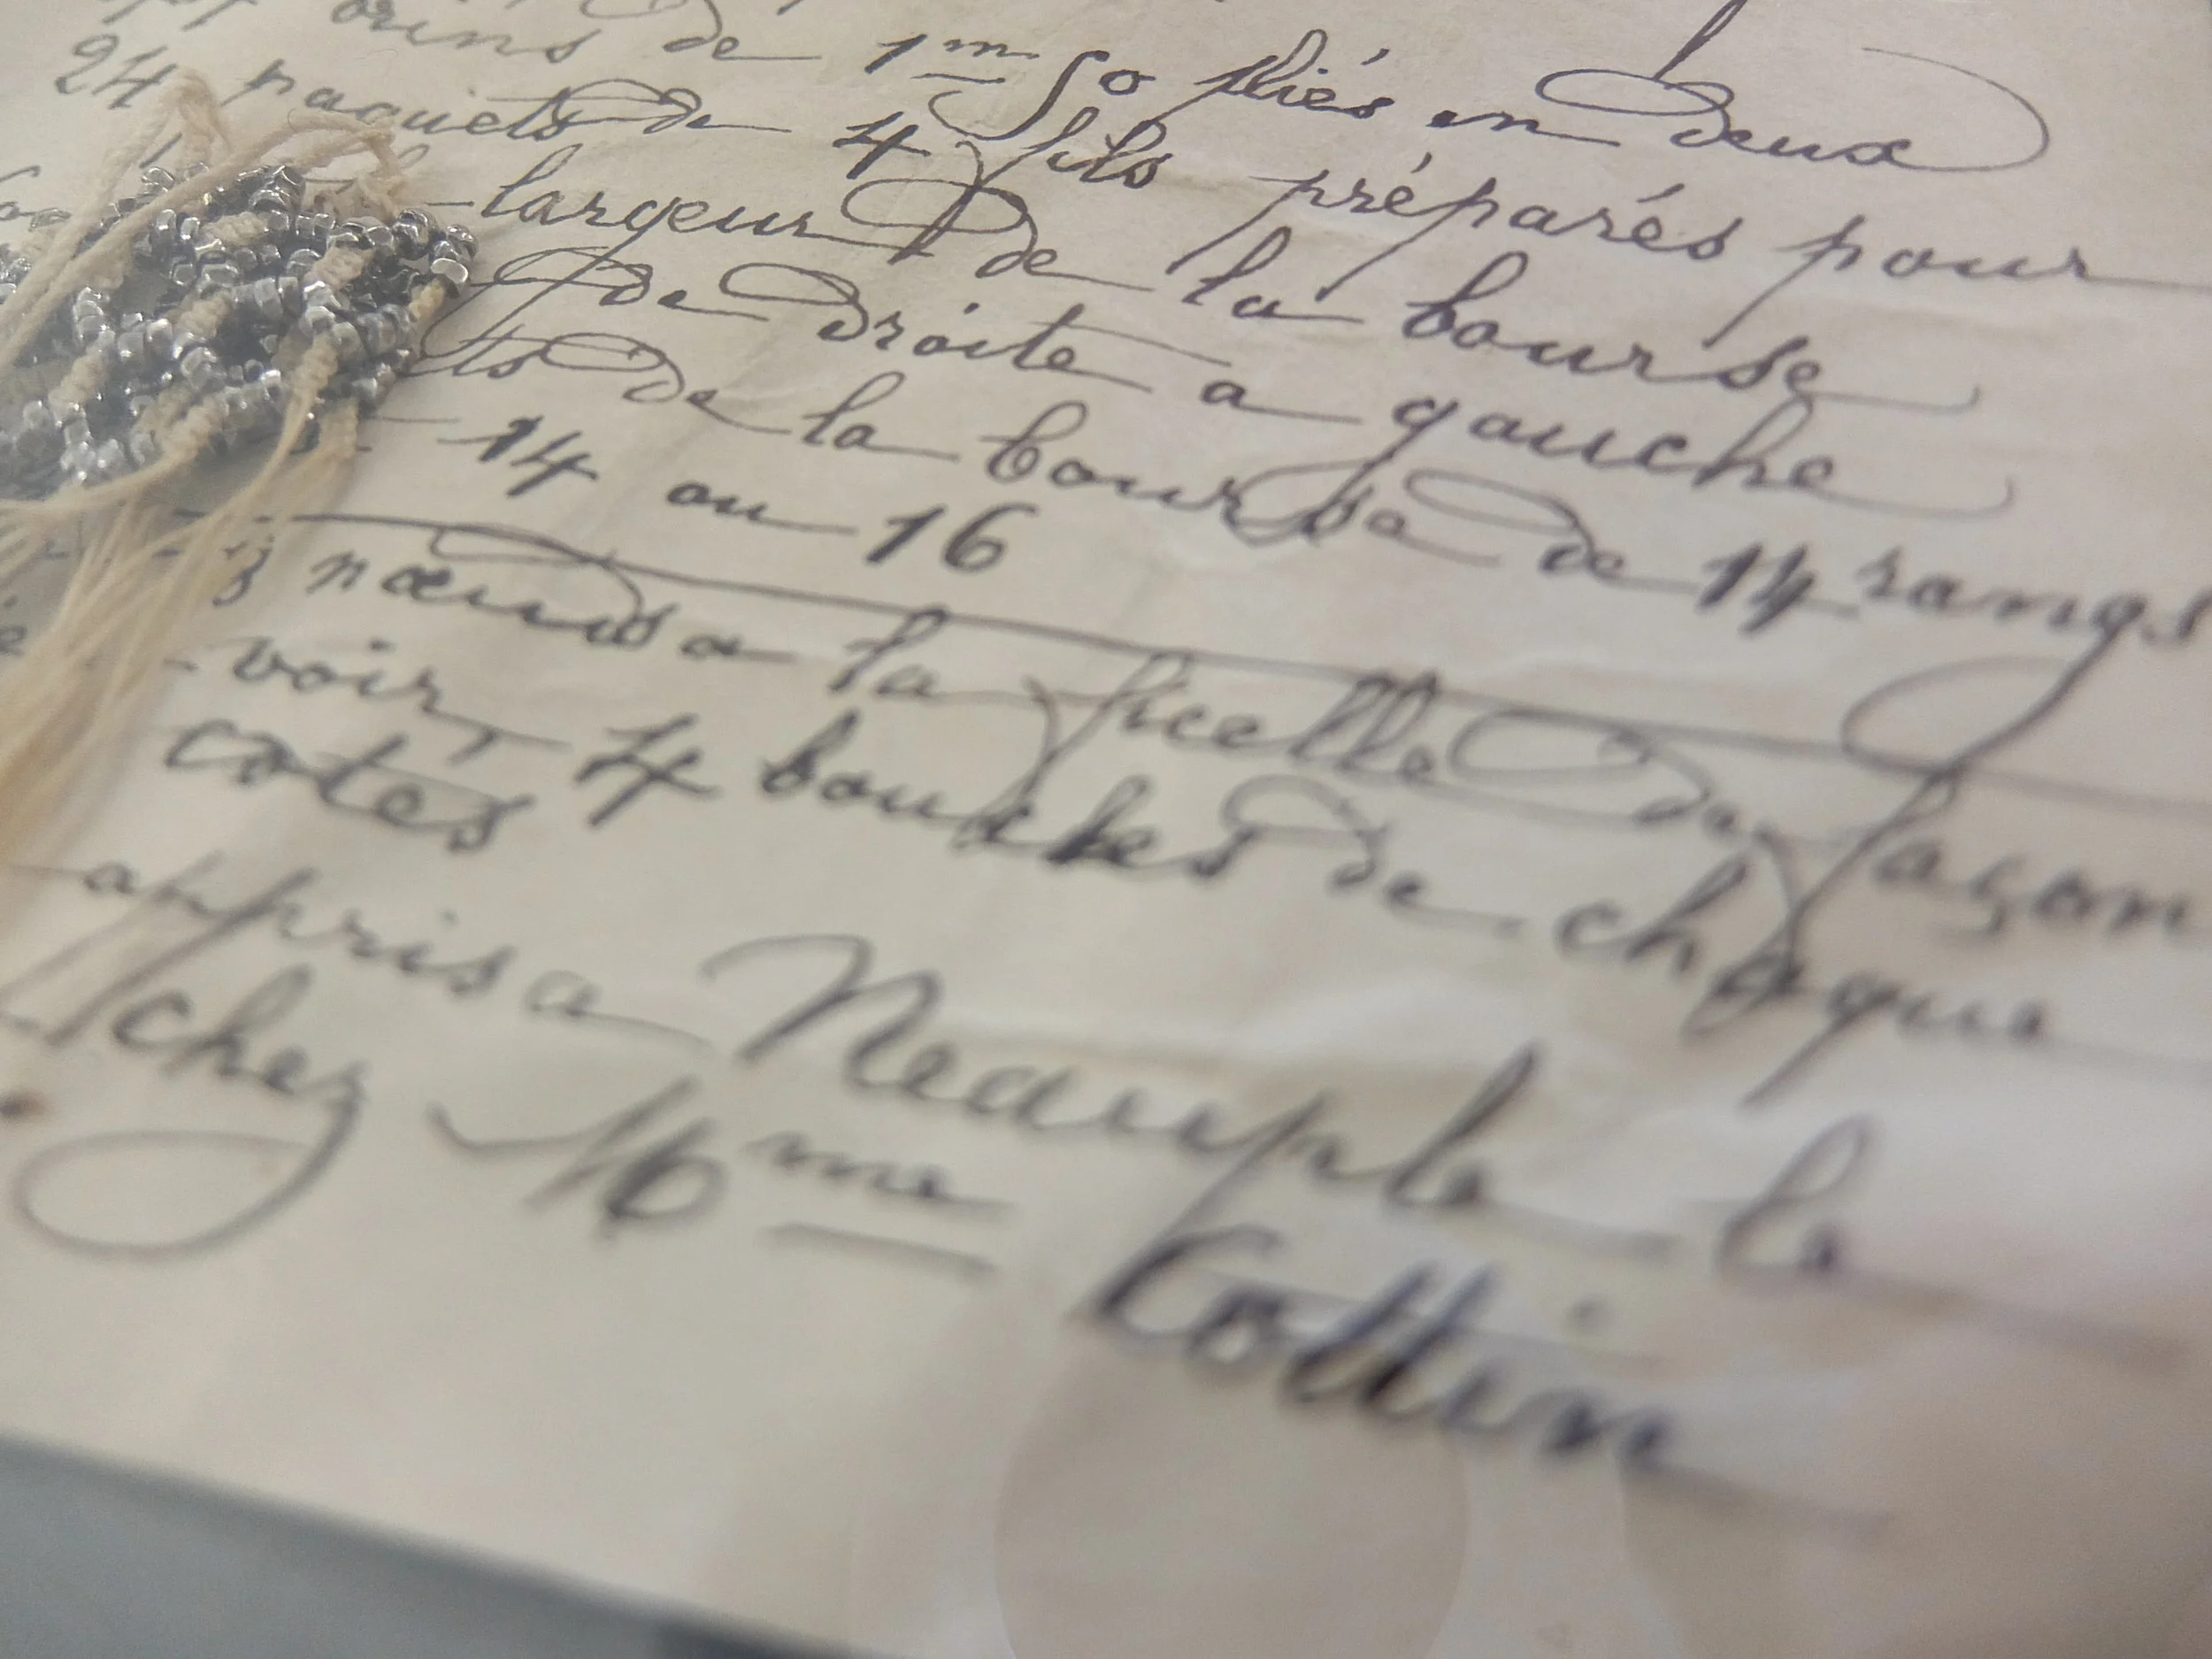 brins de 1m 50 pliés en deux
24 paquets de 4 fils préparés pour
largeur de la bourse
de droite a gauche
de la bourse de 14 rangs
14 ou 16
nœuds a la ficelle de façon
voir 4 boucles de chaque
cotés
appris a Neauple le
chez Mme Collin